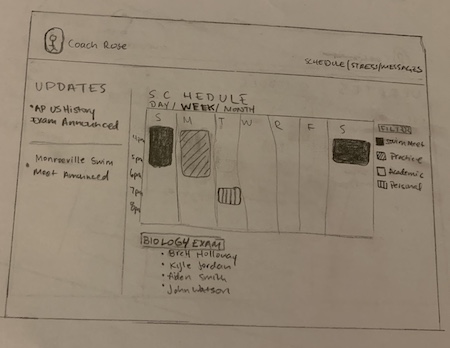 Coach Rose
SCHEDULE/STRESS/MESSAGES
UPDATES
• AP US History
Exam Announced
• Monroeville Swim
Meet Announced
SCHEDULE
DAY/WEEK/MONTH
S M T W R F S
4pm
5pm
6pm
7pm
8pm
FILTER
Swim Meet
Practice
Academic
Personal
BIOLOGY EXAM
• Brett Holloway
• Kyle Jordan
• Aiden Smith
• John Watson